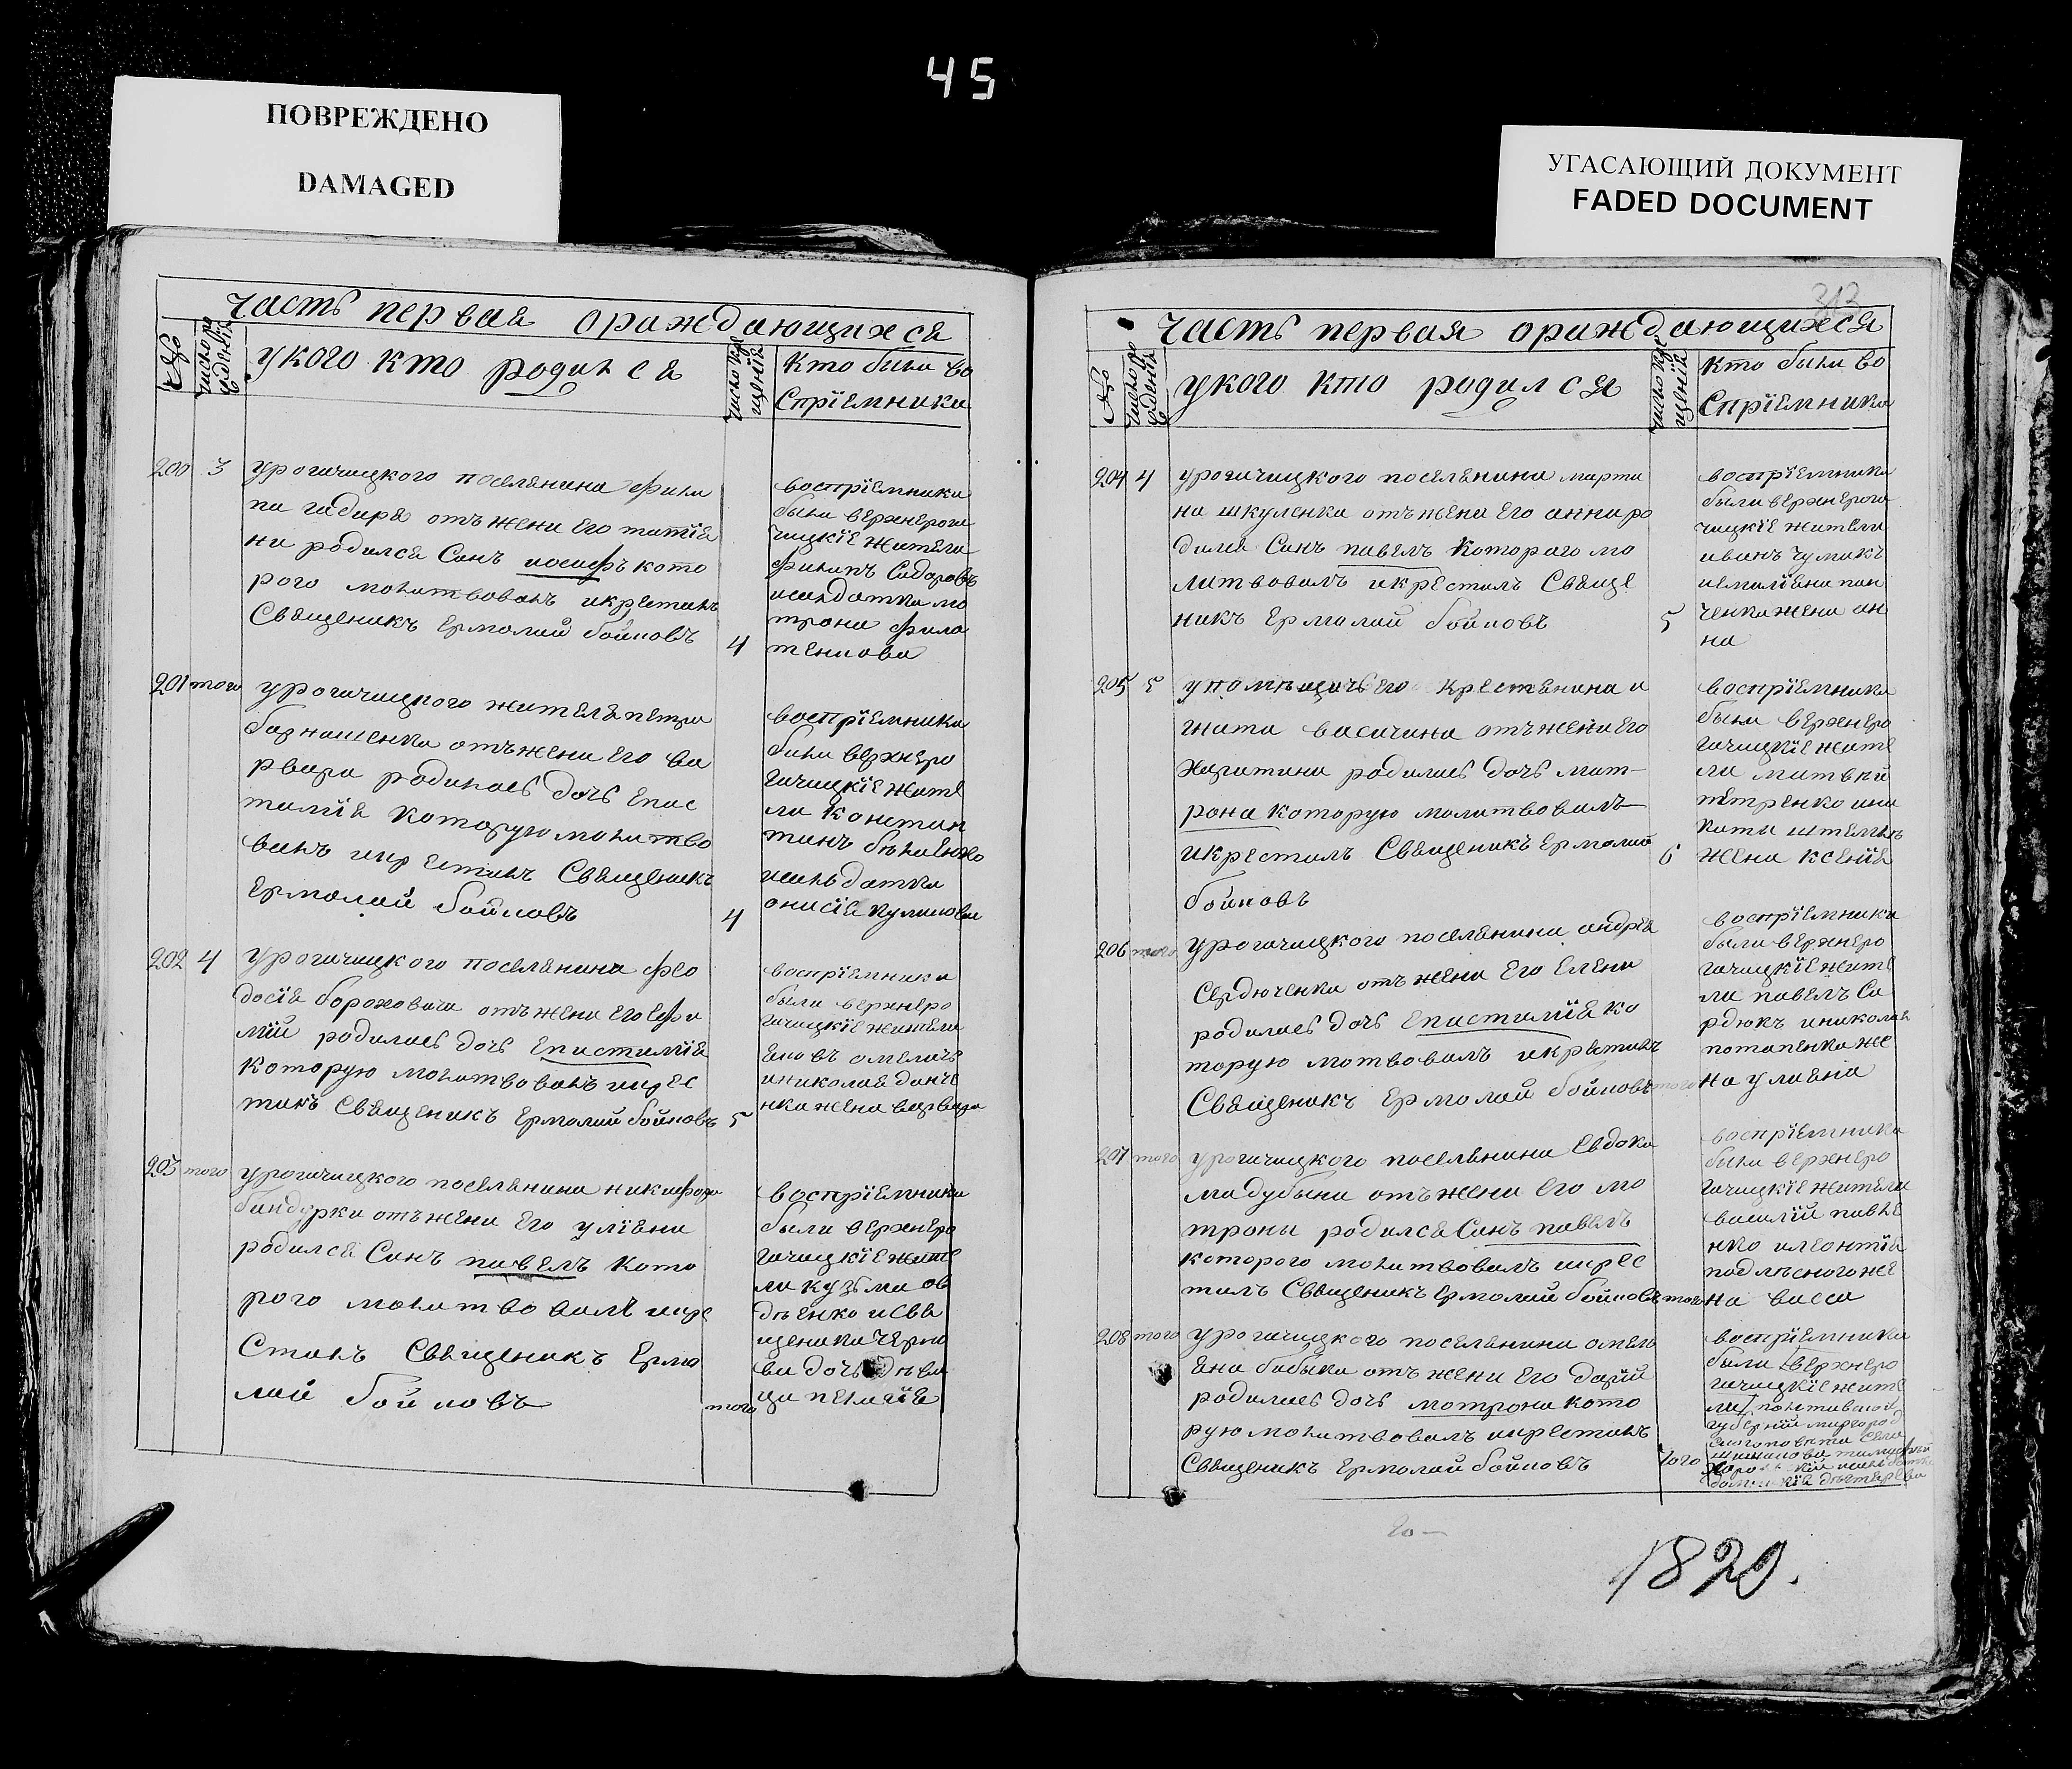 45
ПОВРЕЖДЕНО
DAMAGED
УГАСАЮЩИЙ ДОКУМЕНТ
FADED DOCUMENT
часть первая ораждающихся
число ро
число кре
щенїя
укого кто родился
кто были во
спрїемники
200 3
урогачицкого поселянина фили
па отъ жени его татїя
ни родился Синъ иосифъ кото
рого молитвовалъ икрестилъ
Священикъ Ермолай бойковъ
4
воспрїемники
были верхнерога
чицкїе жители
филипъ Сидоровъ
исолдатка мо
трона
201 того
урогачицкого жителя петра
отъ жени его ва
рвари родилась дочъ Епис
тимїя которую молитво
валъ икрестилъ Священикъ
Ермолай бойковъ
4
воспрїемники
были верхнеро
гачицкїе жите
ли констан
тинъ
исолдатка
онисїя
202 4
урогачицкого поселянина фео
досїя отъ жени его Ефи
мїи родилась дочъ Епистимїя
которую молитвовалъ икрес
тилъ Священикъ Ермолай бойковъ
5
воспрїемники
были верхнеро
гачицкїе жители
яковъ
иниколая данче
нка жена варвара
203 того
урогачицкого поселянина никифора
бандурки отъ жени его улїяни
родился Синъ павелъ кото
рого молитвовалъ икре
Стилъ Священикъ Ермо
лай бойковъ
того
воспрїемники
были верхнеро
гачицкїе жите
ли кузьма ов
дѣенко исвя
щеника черня
ва дочъ дѣви
ца пелагїя
313
часть первая ораждающихся
число ро
число кре
щенїя
укого кто родился
кто были во
Спрїемники
204 4
урогачицкого поселянина марти
на шкуленка отъ жени его анни ро
дился Синъ павелъ которого мо
литвовалъ икрестилъ Священ
никъ Ермолай бойковъ
5
воспрїемники
были верхнерога
чицкїе жители
иванъ чумакъ
иемилїяна пан
ченка жена ан
на
205 5
упомѣщичьего крестянина и
гната василина отъ жени его
Харитини родилась дочъ мат-
рона которую молитвовалъ
икрестилъ Священикъ Ермолай
бойковъ
6
воспрїемники
были верхнеро
гачицкїе жите
ли матвей
петренко ини
кити
жена ксенїя
206 того
урогачицкого поселянина андрея
Сердюченка отъ жени его Елени
родилась дочъ Епистимїя ко
торую мотвовалъ икрестилъ
Священикъ Ермолай бойковъ
того
воспрїемники
были верхнеро
гачицкїе жите
ли павелъ Се
рдюкъ иниколая
потапенка же
на улїяна
207 того
урогачицкого поселянина Евдоки
ма дубыни отъ жени его мо
трони родился Синъ павелъ
которого молитвовалъ икрес
тилъ Священикъ Ермолай бойковъ
того
воспрїемники
были верхнеро
гачицкїе жители
василїй павле
нко илеонтїя
подлѣсного же
на васса
208 того
урогачицкого поселянина омель
яна бабыка отъ жени его дарїи
родилась дочъ мотрона кото
рую молитвовалъ икрестилъ
Священикъ Ермолай бойковъ
того
воспрїемники
были верхнеро
гачицкїе жите
ли полтавской
губернїи миргород
1820.